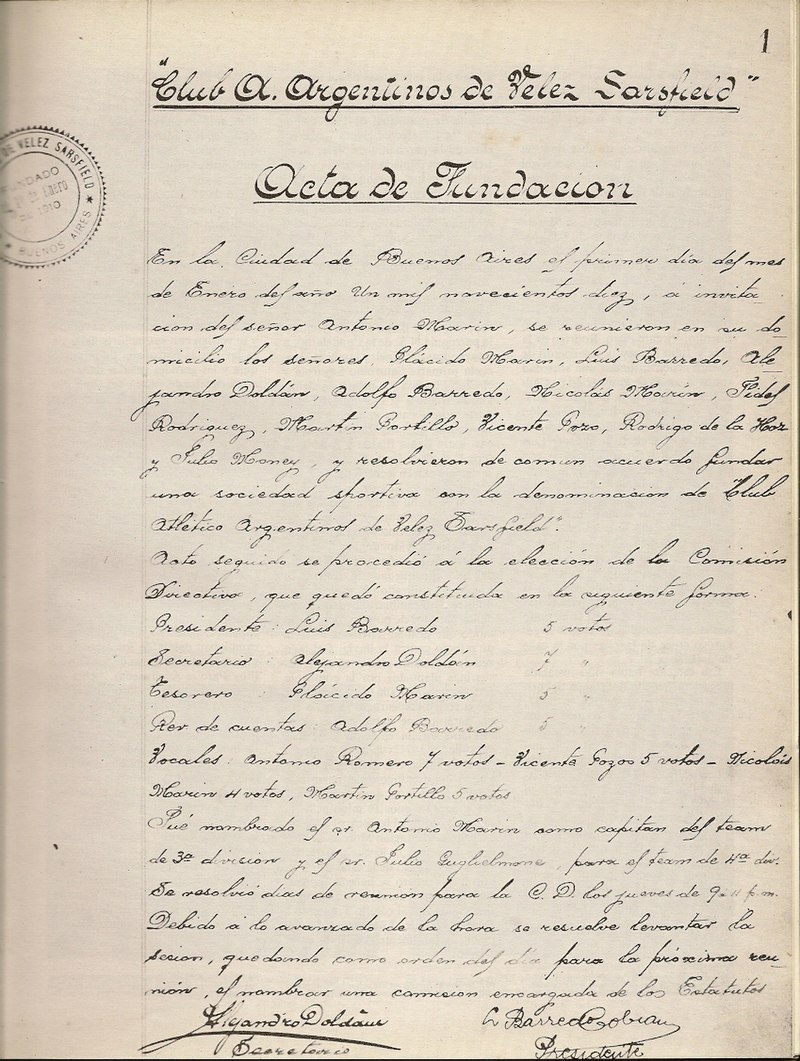 1
"Club A. Argentinos de Velez Sarsfield"
DE VELEZ SARSFIELD
FUNDADO
ENERO
DE 1910
BUENOS AIRES
Acta de Fundacion
En la Ciudad de Buenos Aires el primer día del mes
de Enero del año Un mil novecientos diez, á invita-
cion del señor Antonio Marin, se reunieron en su do-
micilio los señores Plácido Marin, Luis Barredo, Ale
jandro Doldán, Adolfo Barredo, Nicolás Marin, Fidel
Rodriguez, Martin Portillo, Vicente Pozo, Rodrigo de la Hoz
y Julio Money, y resolvieron de comun acuerdo fundar
una sociedad sportiva con la denominacion de "Club
Atlético Argentinos de Velez Sarsfield".
Acto seguido se procedió á la elección de la Comisión
Directiva, que quedó constituida en la siguiente forma:
Presidente: Luis Barredo 5 votos
Secretario: Alejandro Doldán 7 "
Tesorero: Plácido Marin 5 "
Rev. de cuentas: Adolfo Barredo 5 "
Vocales: Antonio Romero 7 votos - Vicente Pozos 5 votos - Nicolás
Marin 4 votos, Martin Portillo 5 votos
Fué nombrado el sr. Antonio Marin como capitan del team
de 3ª division y el sr. Julio Guglielmone, para el team de 4ª div.
Se resolvió dias de reunión para la C. D. los jueves de 9 a 11 p.m.
Debido á lo avanzado de la hora se resuelve levantar la
secion, quedando como orden del día para la próxima reu-
nión, el nombrar una comision encargada de los Estatutos
Alejandro Doldán L Barredo
Secretario Presidente